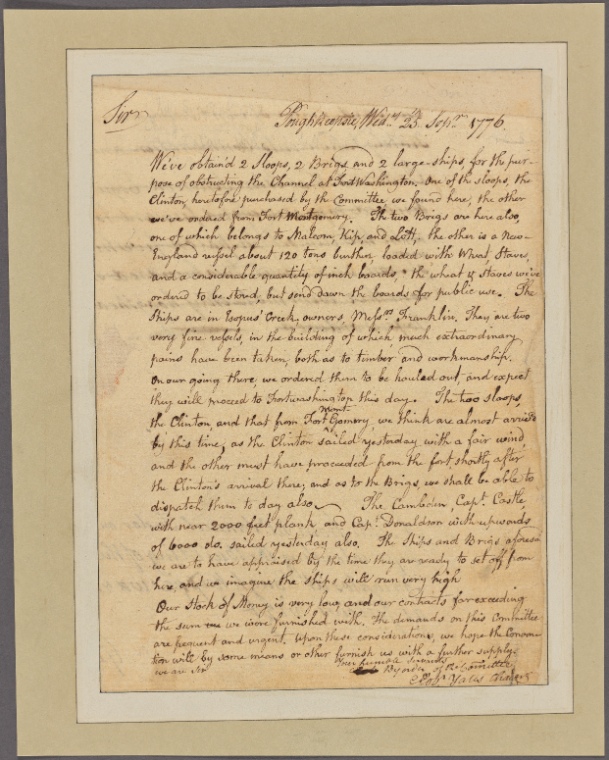 Sir
Poughkeepsie, Wed.y 25 Sep.r 1776.
We've obtain'd 2 Sloops, 2 Brigs, and 2 large ships, for the pur-
pose of obstructing the Channel at Fort Washington. One of the sloops, the
Clinton, heretofore purchased by the Committee, we found here, the other
we've ordered from Fort Montgomery. The two Brigs are here also,
one of which belongs to Malcom, Kip, and Lott, the other is a New-
England vessel about 120 tons burthen, loaded with Wheat, Staves,
and a considerable quantity of inch boards, the wheat & staves we've
ordered to be stored, but send down the boards for public use. The
Ships are in Esopus Creek, owners, Mess.rs Franklin. They are two
very fine vessels, in the building of which much extraordinary
pains have been taken, both as to timber and workmanship.
On our going there, we ordered them to be hauled out, and expect
they will proceed to Fort washington this day. The two sloops,
the Clinton, and that from Fort Montgomery, we think are almost arrived
by this time, as the Clinton sailed yesterday with a fair wind
and the other must have proceeded from the fort shortly after
the Clinton's arrival there; and as for the Brigs, we shall be able to
dispatch them to day also. The Cambden, Cap.t Castle,
with near 2000 feet plank and Cap.t Donaldson with upwards
of 6000 do. sailed yesterday also. The Ships and Brigs aforesd
we are to have appraised by the time they are ready to set off from
here, and we imagine the ships will run very high
Our Stock of Money is very low, and our contracts far exceeding
the sum we were furnished with. The demands on this Committee
are frequent and urgent. Upon these considerations, we hope the Conven-
tion will by some means or other furnish us with a further supply
we are Sir
Your humble Servants
By order of the Committee
Rob.t Yates